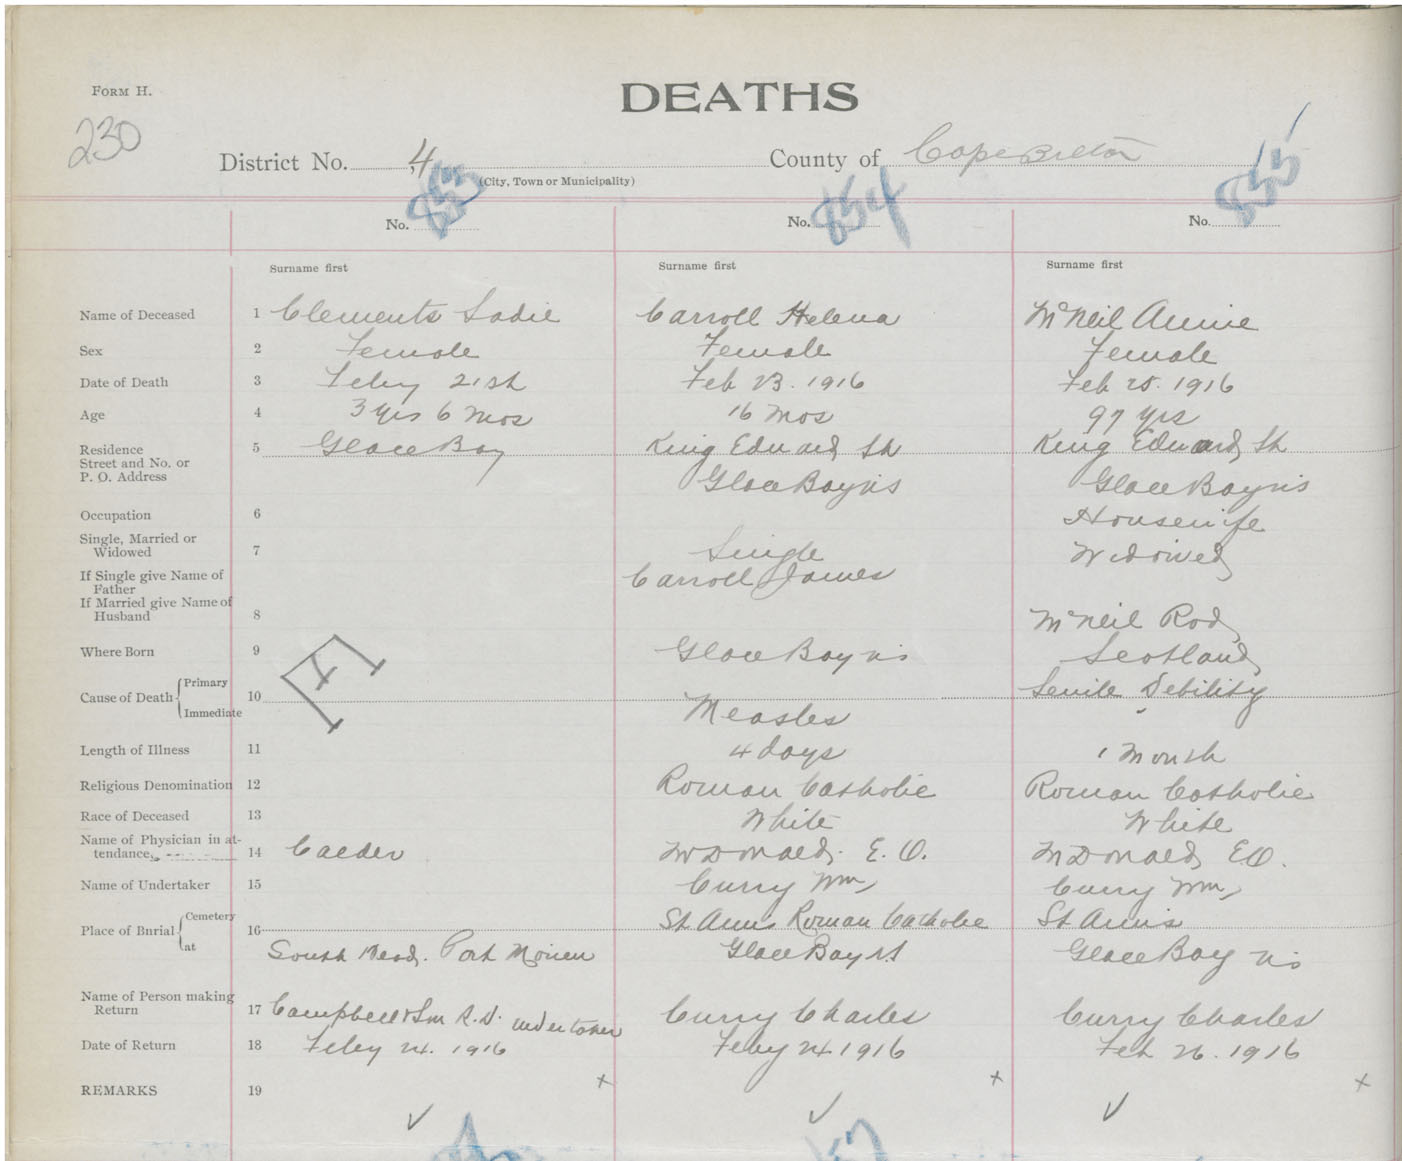 FORM H.
DEATHS
230
District No. 4, County of Cape Breton
(City, Town or Municipality)
No. 853 No. 854 No. 855
Surname first Surname first Surname first
Name of Deceased 1 Clements Sadie Carroll Helena McNeil Annie
Sex 2 Female Female Female
Date of Death 3 Feby 21st Feb 23. 1916 Feb 25. 1916
Age 4 3 yrs 6 mos 16 mos 97 yrs
Residence 5 Glace Bay King Edward St King Edward St
Street and No. or
P. O. Address Glace Bay NS Glace Bay NS
Occupation 6 Housewife
Single, Married or
Widowed 7 Single Widowed
If Single give Name of
Father Carroll James
If Married give Name of
Husband 8 McNeil Rod
Where Born 9 Glace Bay NS Scotland
Cause of Death Primary 10 Senile Debility
Immediate Measles
Length of Illness 11 4 days 1 Month
Religious Denomination 12 Roman Catholic Roman Catholic
Race of Deceased 13 White White
Name of Physician in at-
tendance, 14 Calder McDonald, E. O. McDonald, E.O.
Name of Undertaker 15 Curry Wm, Curry Wm,
Place of Burial Cemetery 16 St Anns Roman Catholic St Anns
at South Head. Port Morien Glace Bay N.S Glace Bay NS
Name of Person making
Return 17 Campbell & Son A. D. undertaker Curry Charles Curry Charles
Date of Return 18 Feby 24. 1916 Feby 24 1916 Feb 26. 1916
REMARKS 19